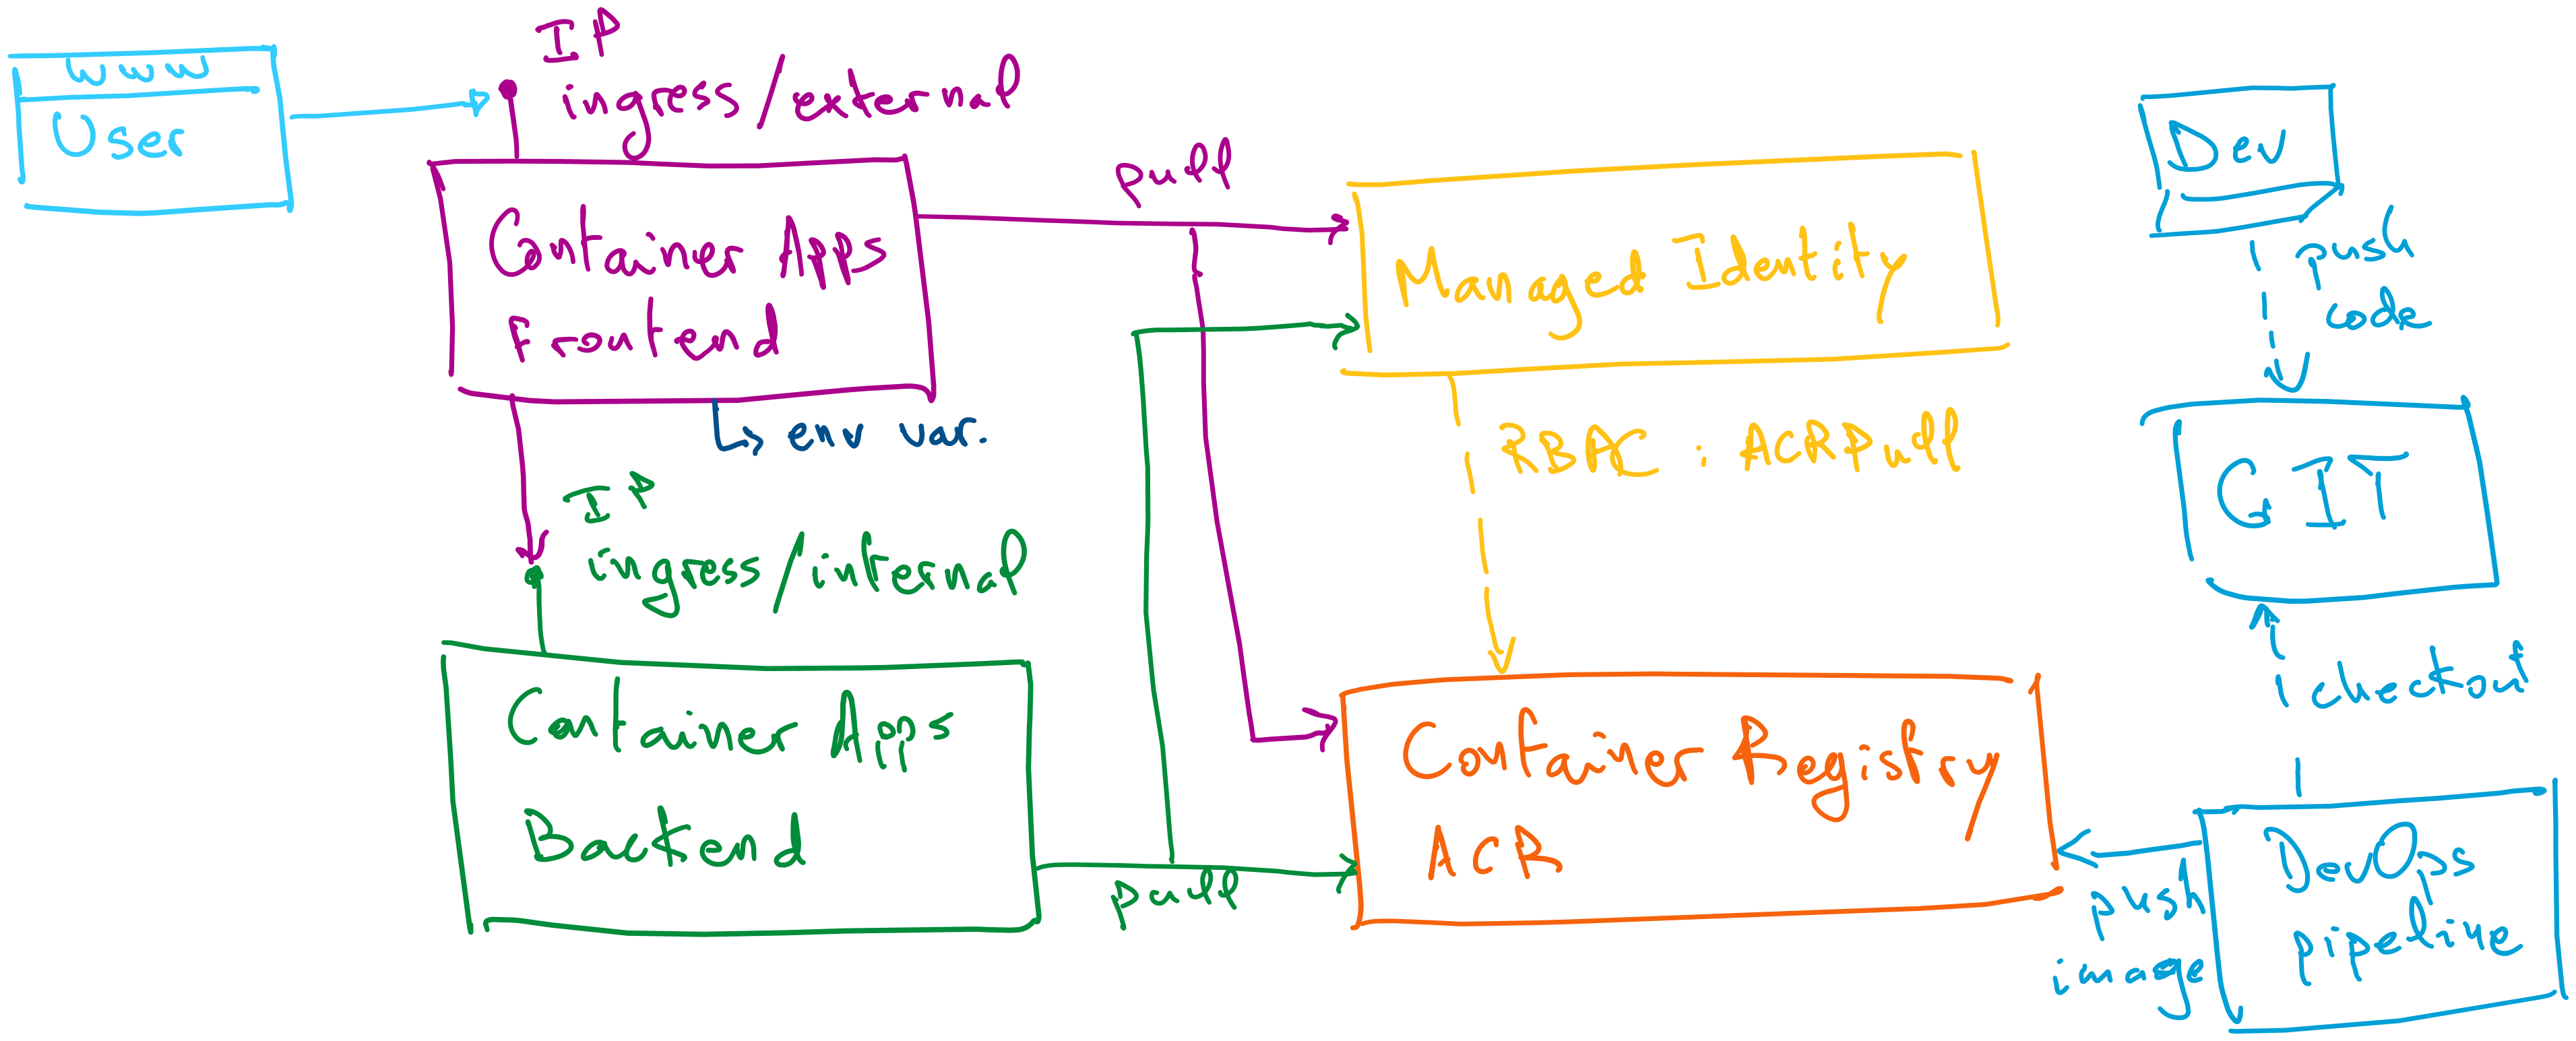 www
User
IP
ingress/external
Container Apps
Frontend
env var.
IP
ingress/internal
Container Apps
Backend
pull
pull
Managed Identity
RBAC : ACRPull
Container Registry
ACR
Dev
push
code
GIT
checkout
DevOps
pipeline
push
image